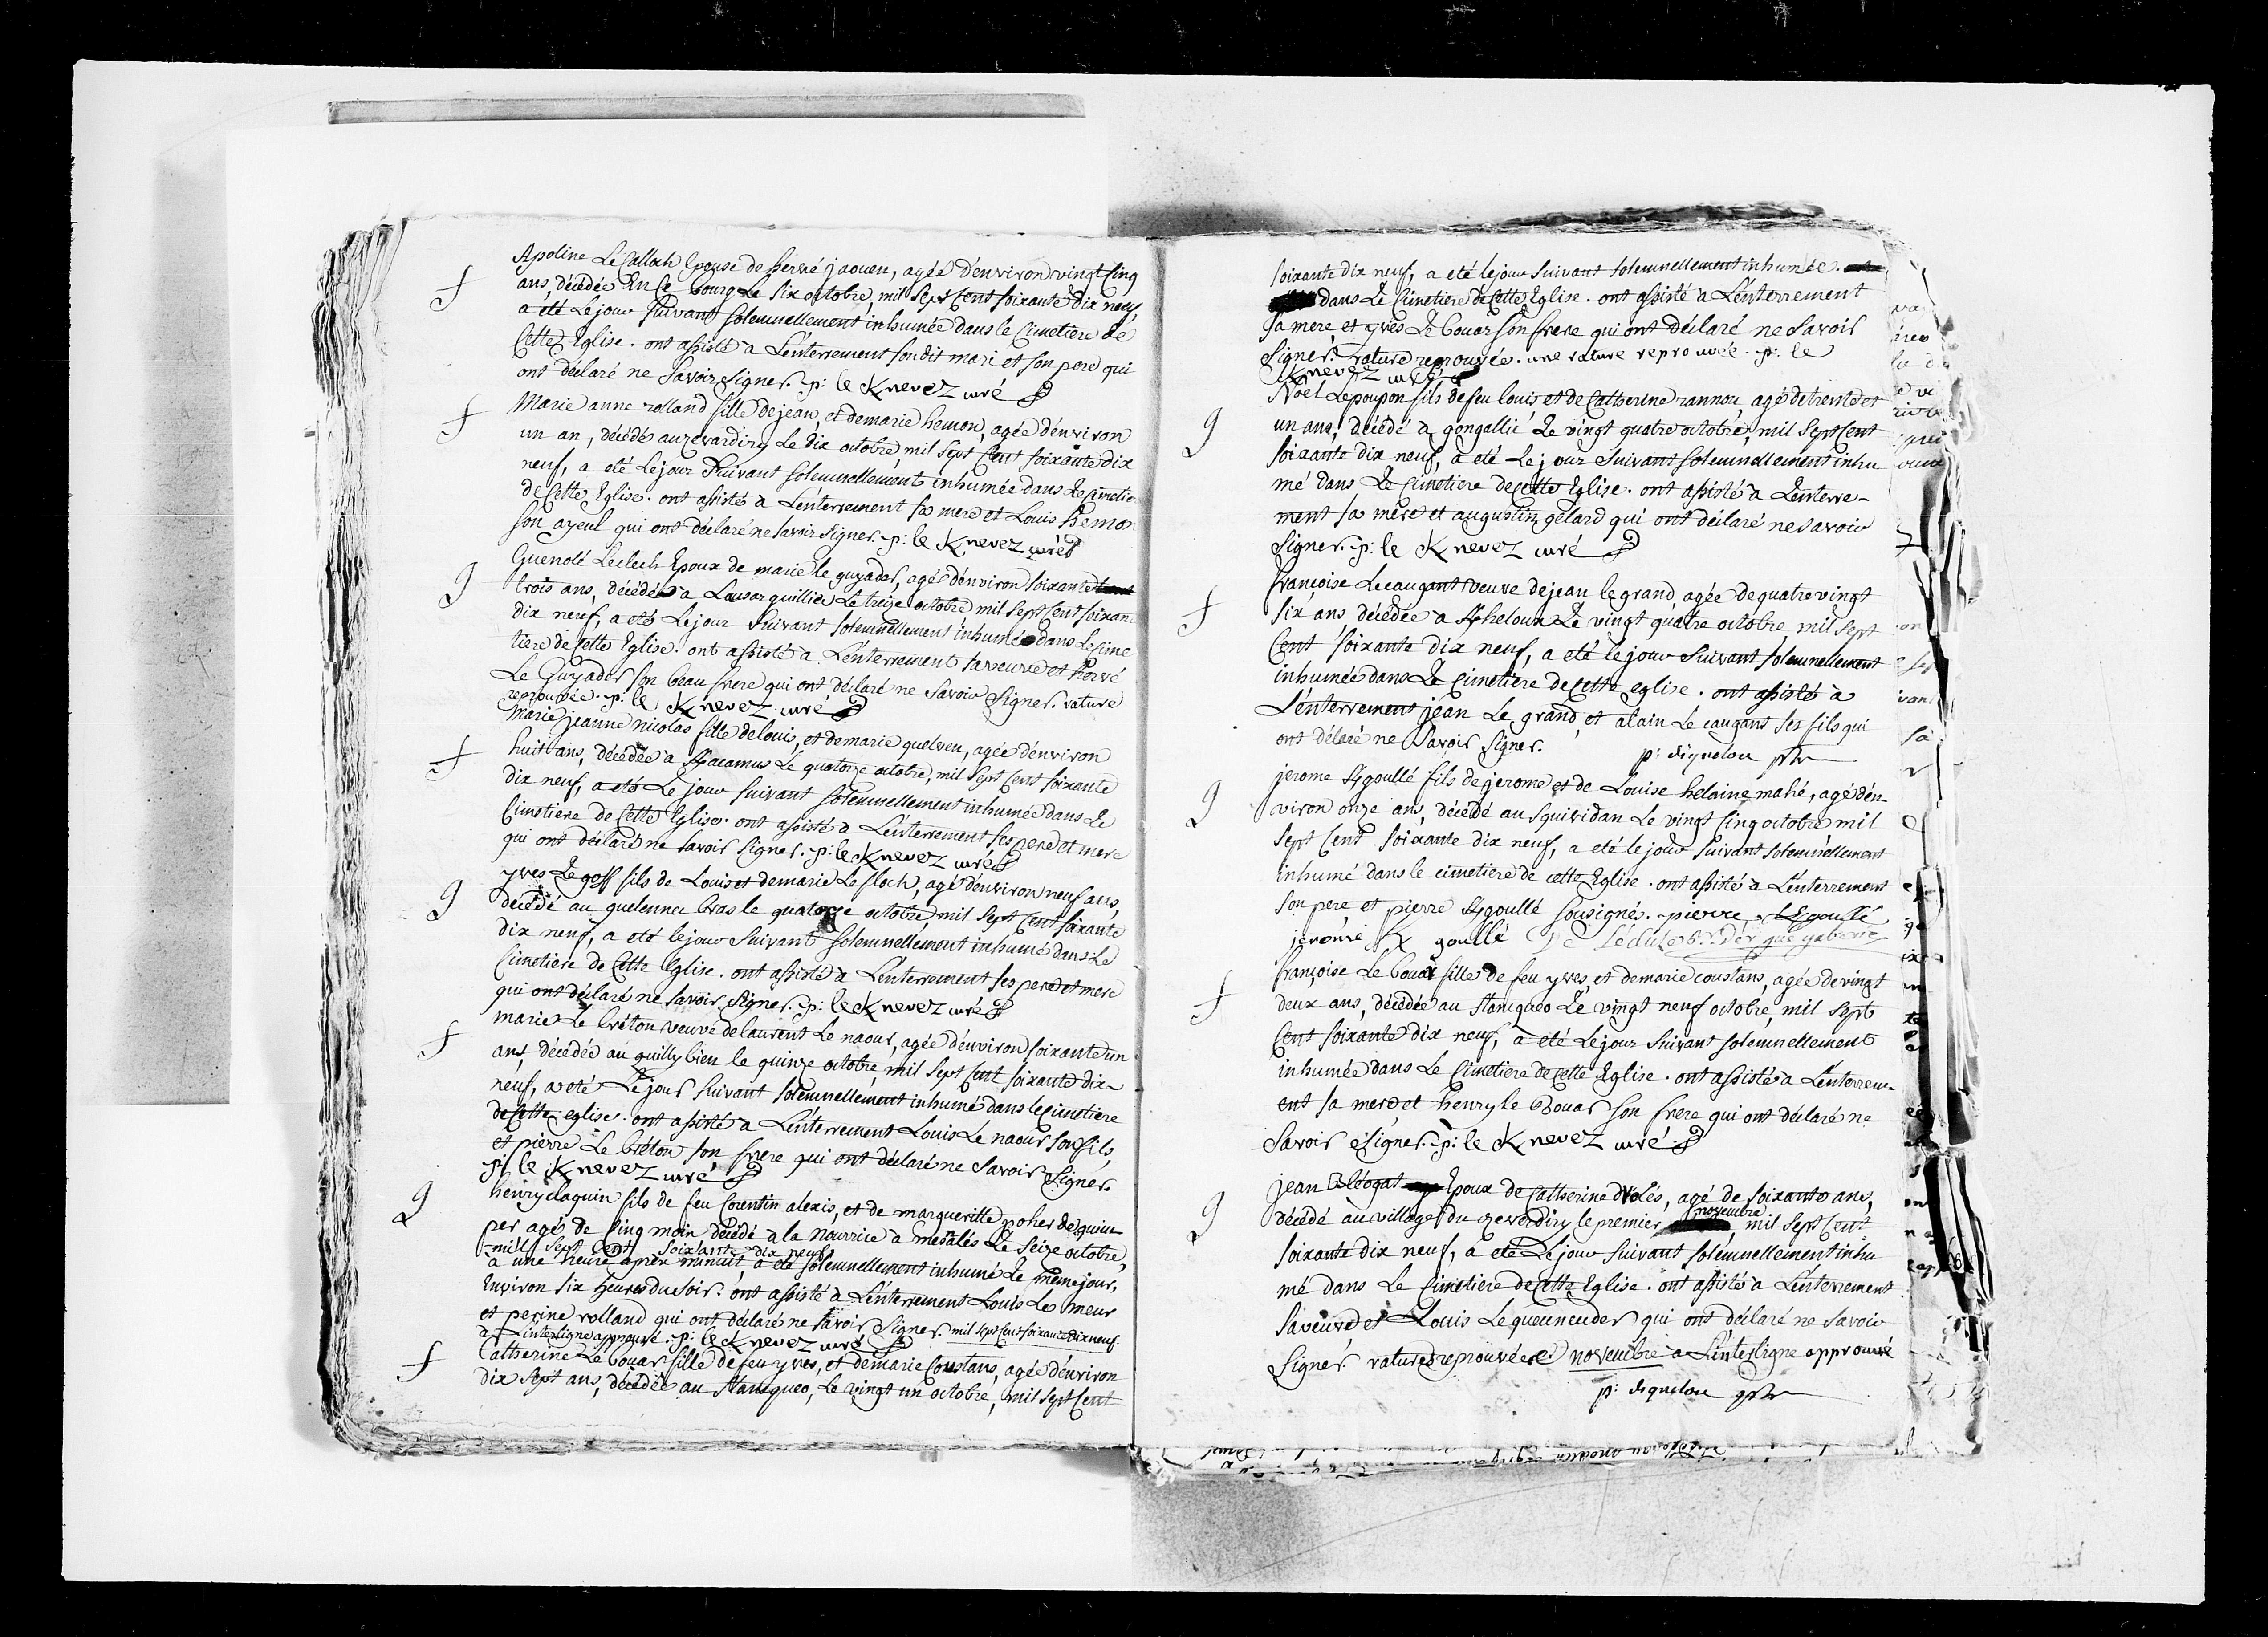 f
Apoline Le Calloch Epouse de hervé jaouen, agée d'environ vingt Cinq
ans, décédée En ce bourg Le Six octobre, mil Sept Cent Soixante dix neuf,
a été Le jour Suivant Solemnellement inhumée dans le Cimetiere de
Cette Eglise. ont assisté a L'enterrement Son dit mari et Son pere qui
ont déclaré ne Savoir Signer. p: le K nevez curé
f
Marie anne rolland fille de jean, et de marie hemon, agée d'environ
un an, décédée au Le dix octobre, mil Sept Cent Soixante dix
neuf, a été Le jour Suivant Solemnellement inhumée dans Le Cimetie
de Cette Eglise. ont assisté a L'enterrement Sa mere et Louis hemon
Son ayeul qui ont déclaré ne Savoir Signer. p: le K nevez curé
g
Guenolé Le clech Epoux de marie le guyader, agé d'environ Soixante
trois ans, décédé a Le treize octobre mil Sept Cent Soixan
dix neuf, a été Le jour Suivant Solemnellement inhumé dans Le Cime
tiere de Cette Eglise. ont assisté a L'enterrement Sa veuve et hervé
Le Guyader Son beau frere qui ont déclaré ne Savoir Signer. rature
reprouvée. p: le K nevez curé
f
Marie jeanne nicolas fille de louis, et de marie quelven, agée d'environ
huit ans, décédée a Le quatorze octobre, mil Sept Cent Soixante
dix neuf, a été Le jour Suivant Solemnellement inhumée dans Le
Cimetiere de Cette Eglise. ont assisté a L'enterrement Ses pere et mere
qui ont déclaré ne Savoir Signer. p: le K nevez curé
g
yves Le goff fils de Louis et de marie Le floch, agé d'environ neuf ans,
décédé au quelennec bras le quatorze octobre, mil Sept Cent Soixante
dix neuf, a été le jour Suivant Solemnellement inhumé dans Le
Cimetiere de Cette Eglise. ont assisté a L'enterrement Ses pere et mere
qui ont déclaré ne Savoir Signer. p: le K nevez curé
f
marie Le bréton veuve de laurent Le naour, agée d'environ Soixante un
ans, décédée au quilly bien le quinze octobre, mil Sept Cent Soixante dix
neuf, a été Le jour Suivant Solemnellement inhumé dans le Cimetiere
de Cette eglise. ont assisté a L'enterrement Louis Le naour Son fils,
et pierre Le bréton Son frere qui ont déclaré ne Savoir Signer.
p: le K nevez curé
g
henry claquin fils de feu Corentin alexis, et de margueritte poher de quim
per agé de Cinq mois, décédé a la Nourrice a mesalés Le Seize octobre,
mill Sept Cent Soixante dix neuf
a une heure après minuit a été Solemnellement inhumé Le même jour,
Environ Six heures du Soir. ont assisté a L'enterrement Louis Le meur
et perine rolland qui ont déclaré ne Savoir Signer. mil Sept Cent Soixante dix neuf
a L'interligne approuvé. p: le K nevez curé
f
Catherine Le bouar fille de feu yves, et de marie Coustans, agée d'environ
dix Sept ans, décédée au Stancqueo, Le vingt un octobre, mil Sept Cent
Soixante dix neuf, a été le jour Suivant Solemnellement inhumée.
dans Le Cimetiere de Cette Eglise. ont assisté a L'enterrement
Sa mere et yves Le bouar Son frere qui ont déclaré ne Savoir
Signer. rature reprouvée. une rature reprouvée. p: le
K nevez curé
g
Noël Le poupon fils de feu louis et de Catherine rannou, agé de trente et
un ans, décédé a gongallic Le vingt quatre octobre, mil Sept Cent
Soixante dix neuf, a été Le jour Suivant Solemnellement inhu
mé dans Le Cimetiere de Cette Eglise. ont assisté a L'enterre-
ment Sa mère et augustin gelard qui ont déclaré ne Savoir
Signer. p: le K nevez curé
f
françoise Le caugant veuve de jean le grand, agée de quatre vingt
Six ans décédée a Le vingt quatre octobre, mil Sept
Cent Soixante dix neuf, a été le jour Suivant Solemnellement
inhumée dans Le Cimetiere de Cette eglise. ont assisté a
L'enterrement jean Le grand, et alain Le caugant Ses fils qui
ont délaré ne Savoir Signer. p: diquelou ptre
g
jerome Kgoullé fils de jerome et de Louise helaine mahé, agé d'en-
viron onze ans, décédé au Squividan Le vingt Cinq octobre mil
Sept Cent Soixante dix neuf, a été le jour Suivant Solemnellement
inhumé dans le cimetiere de cette Eglise. ont assisté a L'enterrement
Son pere et pierre Kgoullé Sousignés. pierre Kgoullé
jerome K goullé
f
françoise Le bouar fille de feu yves, et de marie coustans, agée de vingt
deux ans, décédée au Stancqueo Le vingt neuf octobre, mil Sept
Cent Soixante dix neuf, a été Le jour Suivant Solemnellement
inhumée dans Le Cimetiere de Cette Eglise. ont assisté a L'enterrem-
ent Sa mere et henry Le Bouar Son frere qui ont déclaré ne
Savoir Signer. p: le K nevez curé
g
jean Bléogat Epoux de Catherine agé de Soixante ans,
novembre
décédé au village du le premier mil Sept Cent
Soixante dix neuf, a été Le jour Suivant Solemnellement inhu
mé dans Le Cimetiere de Cette Eglise. ont assisté a L'enterrement
Sa veuve et Louis Le queneuder qui ont déclaré ne Savoir
Signer. rature reprouvée novembre a L'interligne approuvé
p: diquelou ptre